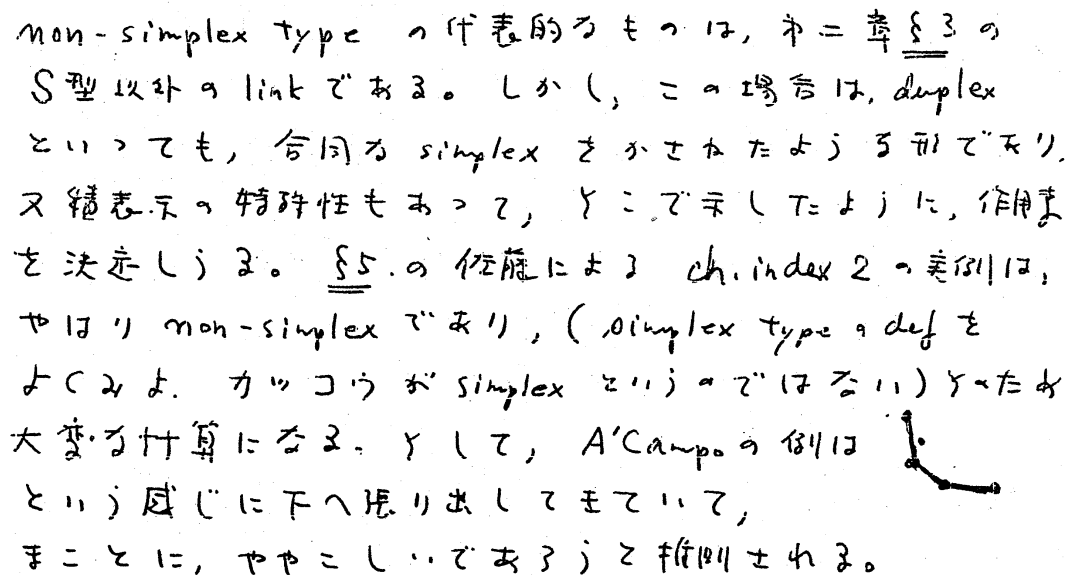 non-simplex type の代表的なものは, 第二章 §3 の
S型以外の link である。しかし, この場合は, duplex
といっても, 合同な simplex をかさねたような形であり,
又 積表示の特殊性もあって, そこで示したように, 作用素
を決定しうる。 §5. の佐藤による ch. index 2 の実例は,
やはり non-simplex であり, (simplex type の def を
よくみよ. カッコウが simplex というのではない) そのため
大変な計算になる. そして, A'Campo の例は
という感じに下へ張り出してきていて,
まことに, ややこしいであろうと推測される。